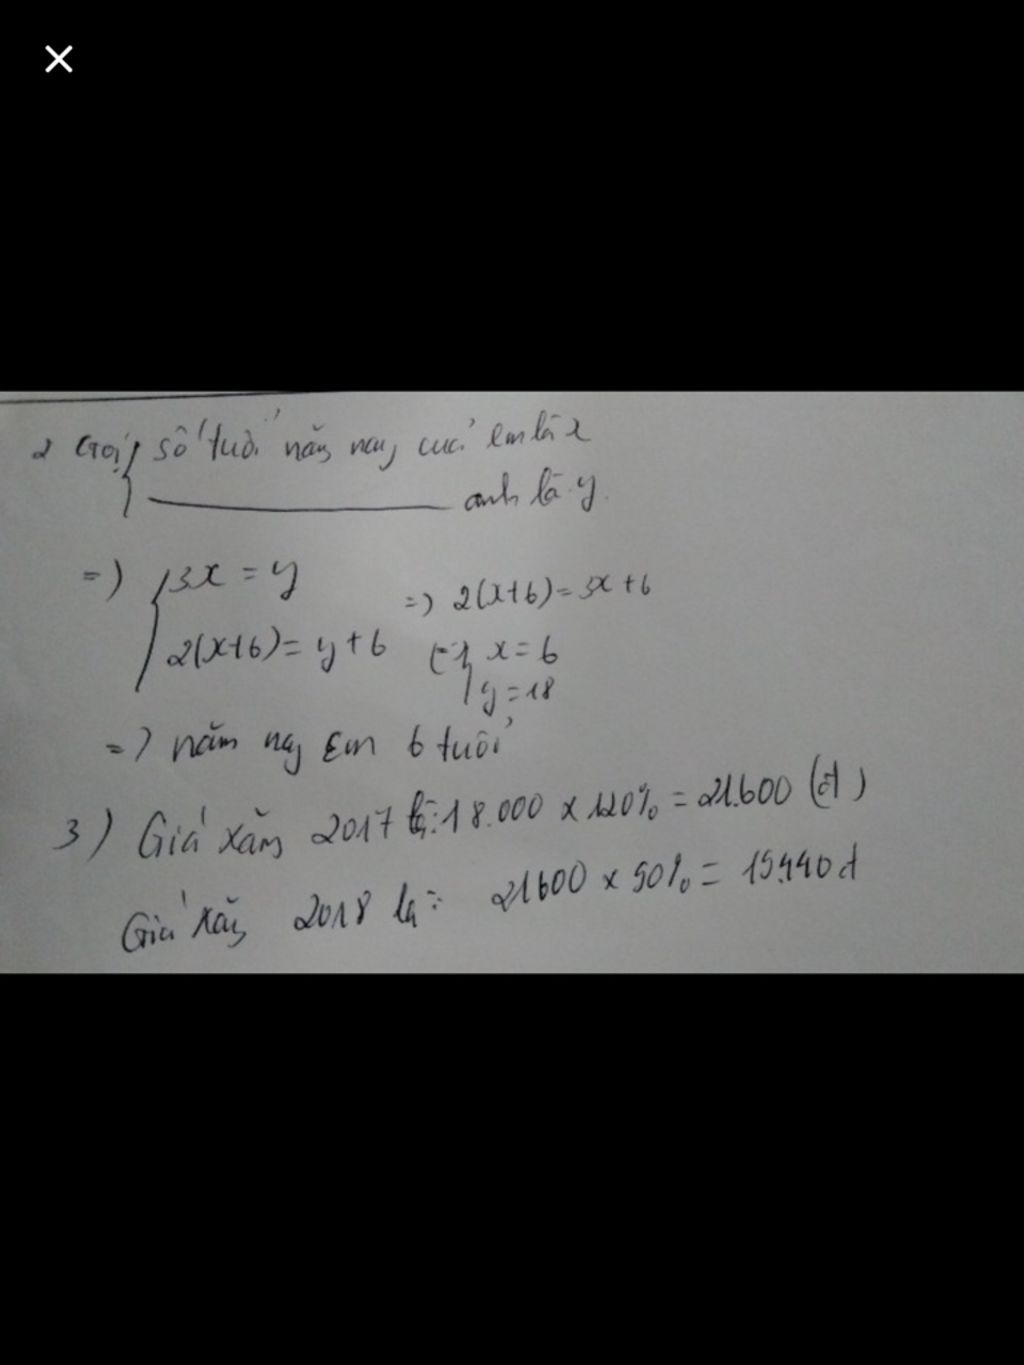 2 Gọi số tuổi năm nay của em là x
anh là y.
=) 3x = y
2(x+6) = y + 6
=) 2(x+6) = 3x + 6
x = 6
y = 18
=) năm nay em 6 tuổi
3) Giá xăng 2017 là: 18.000 x 120% = 21.600 (đ)
Giá xăng 2018 là: 21600 x 90% = 19.440 đ